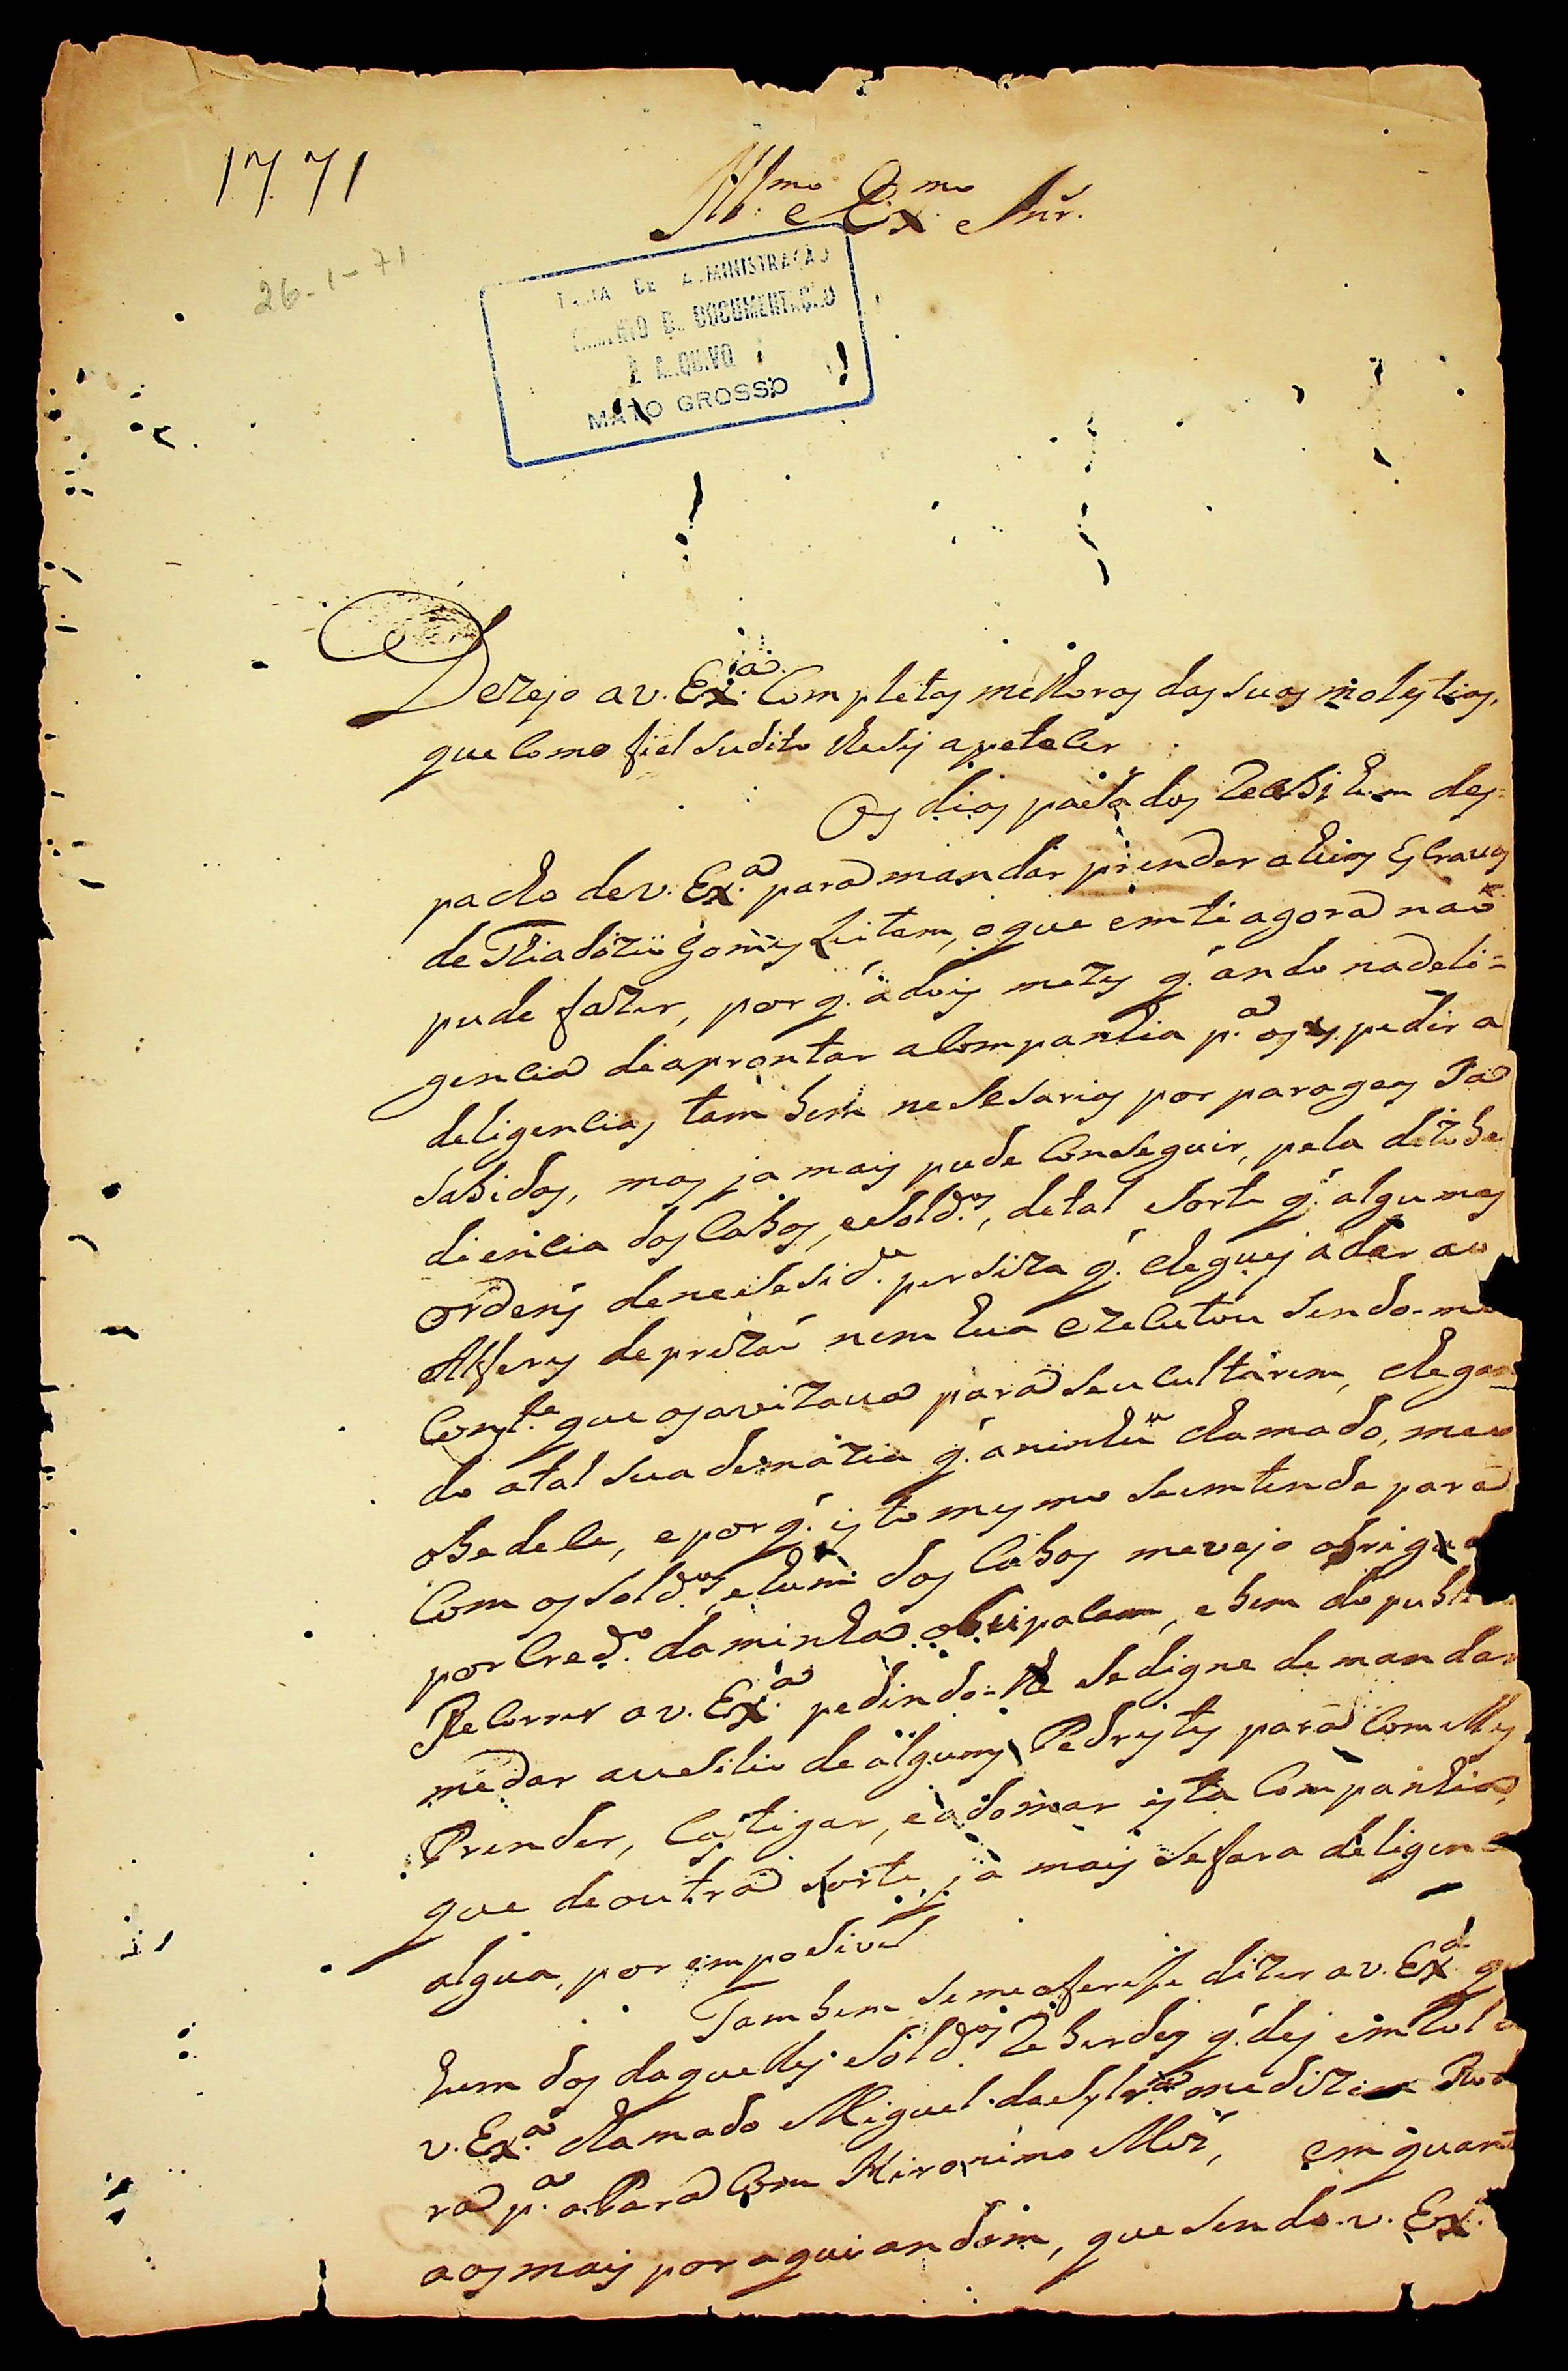 1771
Ill.mo e Ex.mo Snr.
26-1-71
DE ADMINISTRAÇÃO
DE DOCUMENTAÇÃO
E ARQUIVO
MATO GROSSO
Dezejo a v. Ex.a Completas melhoras das suas molestias,
que Como fiel sudito lhesej apeteser
Os dias paeSados Recebi hum des=
pacho de v. Ex.a para mandar prender a huns Escravos
de Gomes Leitam, o que emté agora naõ
pude fazer, por q' a dois mezes q' ando na deli=
gencia de aprontar a Companhia p.a os espedir a
deligencias tam bem neseSarias por parages Ja
Sabidas, mas ja mais pude Conseguir, pela dezobe
diencia dos Cabos, e Sold.os, de tal Sorte q' algumas
ordens de neseSid.e persiza q' cheguej a dar ao
Alferes de prizaõ nem hua ezecutou Sendo-me
Const.e que os avizava para Se ocultarem, chegan
do a tal sua q' a ninhũ chamado, meu
obedese, e por q' isto mesmo Se emtende para
Com os Sold.os, e hum dos Cabos me vejo obrigad
por Cred.o da minha, e bem do publi
ReCorrer a v. Ex.a pedindo-lhe Se digne de mandar
me dar aueSilio de alguns Pedrestes para Com elles
Prender, Castigar, e adomar esta Companhia,
que de outra Sorte, ja mais Se fara deligenc
algua, por empoSivel
Tambem Se me oferese dizer a v. Ex.a q
hum dos daquelles Sold.os Reberdes q' dej em Rol a
v. Ex.a chamado Miguel da Sylv.a me dizem Rod
ra p.a o Para Com Hironimo Miz', emquant
aos mais por aqui andam, que Sendo v. Ex.